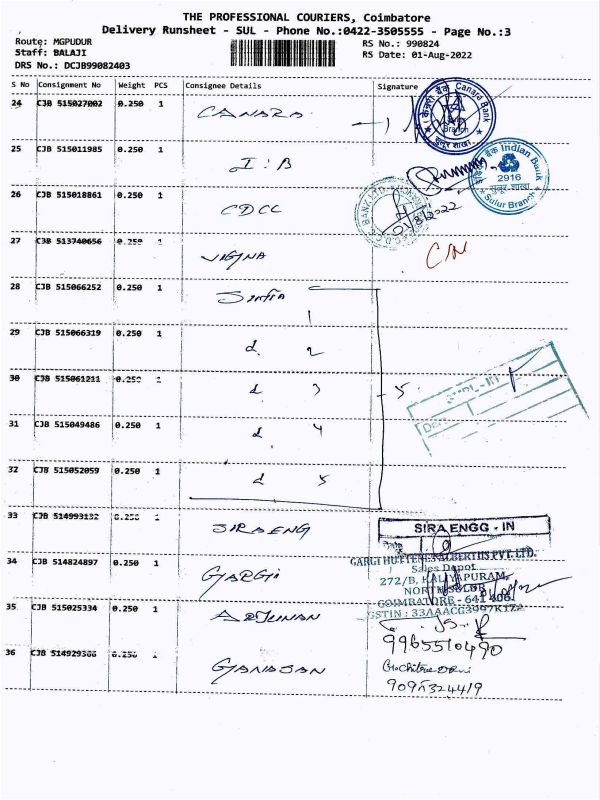 THE PROFESSIONAL COURIERS, Coimbatore
Delivery Runsheet - SUL - Phone No.:0422-3505555 - Page No.:3
Route: MGPUDUR RS No.: 990824
Staff: BALAJI RS Date: 01-Aug-2022
DRS No.: DCJB99082403
S No Consignment No Weight PCS Consignee Details Signature
24 CJB 515027002 0.250 1 CANARA
Canara Bank
Branch
25 CJB 515011985 0.250 1 I.B
Indian Bank
2916
Sulur Branch
26 CJB 515018861 0.250 1 CDCC
27 CJB 513740656 0.250 1
28 CJB 515066252 0.250 1
1
29 CJB 515066319 0.250 1 d. 2
30 CJB 515061211 0.250 1 d 3 5
31 CJB 515049486 0.250 1 d 4
32 CJB 515052059 0.250 1 d 5
33 CJB 514993132 0.250 1 SIRAENG
SIRA ENGG - IN
34 CJB 514824897 0.250 1 GARGI
GARGI HUTTENES ALBERTUS PVT. LTD.
Sales Depot
272/B, KALIYAPURAM,
NORTH SULUR
COIMBATORE - 641 406
35 CJB 515025334 0.250 1 ARJUNAN
9965510490
36 CJB 514929366 0.250 1 GANASAN
9095324419